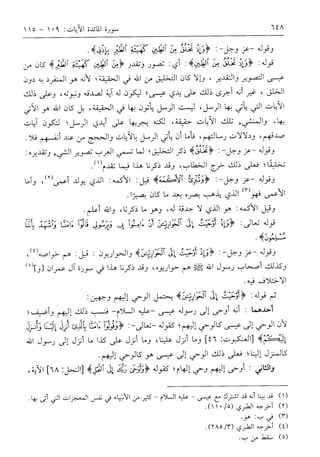 ٦٤٨
سورة المائدة الآيات: ١٠٩ - ١١٥
وقوله -عز وجل-: ﴿وَإِذْ تَخْلُقُ مِنَ الطِّينِ كَهَيْئَةِ الطَّيْرِ بِإِذْنِي﴾.
قوله: ﴿وَإِذْ تَخْلُقُ مِنَ الطِّينِ كَهَيْئَةِ الطَّيْرِ﴾ أي: تصور وتقدر ﴿تَخْلُقُ مِنَ الطِّينِ﴾ كان من
عيسى التصوير والتقدير، وإلا كان التخليق من الله في الحقيقة؛ لأنه هو المنفرد به دون
الخلق، غير أنه أجرى ذلك على يدي عيسى؛ ليكون له آية لصدقه ونبوته، وعلى ذلك
الآيات التي يأتي بها الرسل، ليست الرسل يأتون بها في الحقيقة، بل كان الله هو الآتي
بها، والمنشيء تلك الآيات حقيقة، لكنه يجريها على أيدي الرسل؛ لتكون آيات
صدقهم، ودلالات رسالتهم، فأما أن يأتي الرسل بالآيات والحجج من عند أنفسهم فلا.
وقوله -عز وجل-: ﴿تَخْلُقُ﴾ ذكر التخليق؛ لما تسمي العرب تصوير الشيء وتقديره:
تخليقًا؛ فعلى ذلك خرج الخطاب، وقد ذكرنا هذا فيما تقدم(١).
وقوله -عز وجل-: ﴿وَتُبْرِئُ الْأَكْمَهَ﴾ قيل: الأكمه: الذي يولد أعمى(٢)، وأما
الأعمى فهو(٣) الذي يذهب بصره بعد ما كان بصيرًا.
وقيل الأكمه: هو الذي لا حدقة له، وهو ما ذكرنا، والله أعلم.
قوله تعالى: ﴿وَإِذْ أَوْحَيْتُ إِلَى الْحَوَارِيِّينَ أَنْ آمِنُوا بِي وَبِرَسُولِي قَالُوا آمَنَّا وَاشْهَدْ بِأَنَّنَا
مُسْلِمُونَ﴾.
وقوله -عز وجل-: ﴿وَإِذْ أَوْحَيْتُ إِلَى الْحَوَارِيِّينَ﴾ والحواريون: قيل: هم خواصه(٤)،
وكذلك أصحاب رسول الله ﷺ هم حواريوه، وقد ذكرنا هذا في سورة آل عمران [و](٥)
الاختلاف فيه.
ثم قوله: ﴿أَوْحَيْتُ إِلَى الْحَوَارِيِّينَ﴾ يحتمل الوحي إليهم وجهين:
أحدهما: أنه أوحى إلى رسوله عيسى -عليه السلام- فنسب ذلك إليهم وأضيف؛
لأن الوحي إلى عيسى كالوحي إليهم؛ كقوله -تعالى-: ﴿وَقُولُوا آمَنَّا بِالَّذِي أُنْزِلَ إِلَيْنَا وَأُنْزِلَ
إِلَيْكُمْ﴾ [العنكبوت: ٤٦] وما أنزل علينا، وما أنزل على كذا ما أنزل إلى رسول الله
كالمنزل إلينا؛ فعلى ذلك الوحي إلى عيسى هو كالوحي إليهم.
والثاني: أوحى إليهم وحي إلهام؛ كقوله ﴿وَأَوْحَىٰ رَبُّكَ إِلَى النَّحْلِ﴾ [النحل: ٦٨] الآية،
(١) قد بينا أنه قد اشترك مع عيسى - عليه السلام - كثير من الأنبياء في نفس المعجزات التي أتى بها.
(٢) أخرجه الطبري (١١٠/٥).
(٣) في ب: هو.
(٤) أخرجه الطبري (٢٨٥/٣).
(٥) سقط من ب.